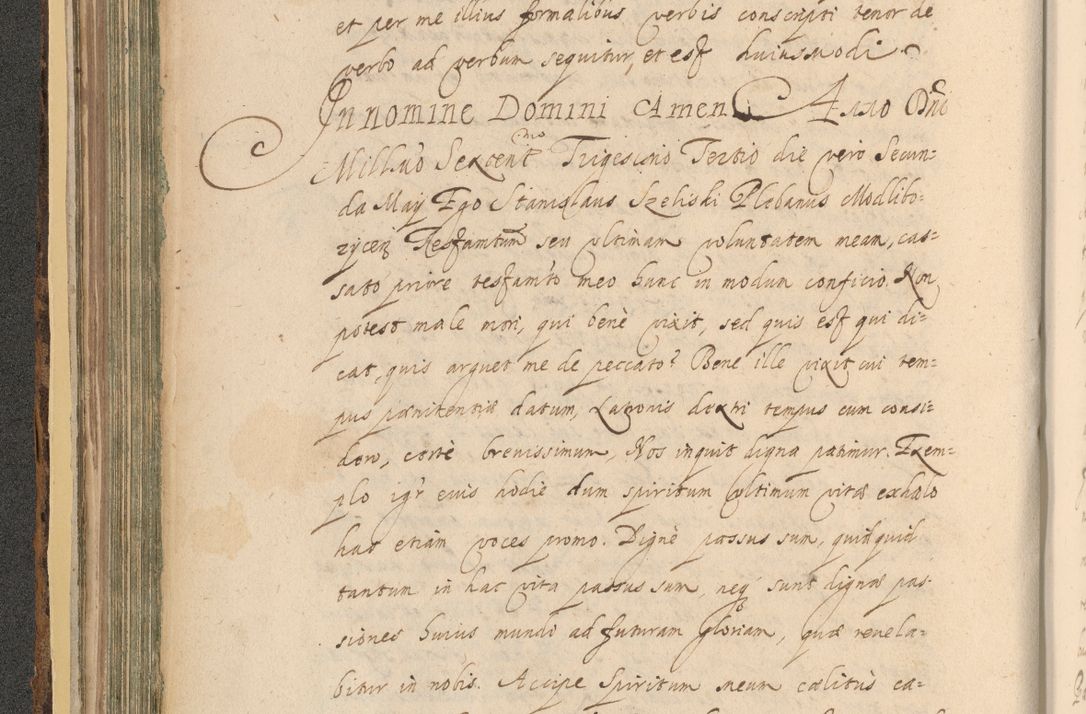 et per me illius formalibus verbis conscripti tenor de
verbo ad verbum sequitur, et est huiusmodi
In nomine Domini Amen. Anno Dnō
Mill̄mo Sexcent̄mo Trigesimo Tertio die vero Secun=
da May Ego Stanislaus Szeliski Plebanus Modlibo=
zycen̄ Testamtum seu ultimam voluntatem meam, cas=
sato priore testam̄to meo hunc in modum conficio. Non
potest male mori, qui benè vixit, sed quis est qui di=
cat, quis arguet me de peccato? Bene ille vixit cui tem=
pus pœnitentiæ datum, Latronis dextri tempus cum consi=
dero, certè brevissimum, Nos inquit digna patimur. Exem=
plo igr̄ eius hodie dum spiritum ultimum vitæ exhalo
has etiam voces promo. Dignè passus sum, quidquid
tantum in hac vita passus sum, neq̄ sunt dignæ pas=
siones huius mundi ad futuram gloriam, quæ revela=
bitur in nobis. Accipe Spiritum meum cælitùs ca=